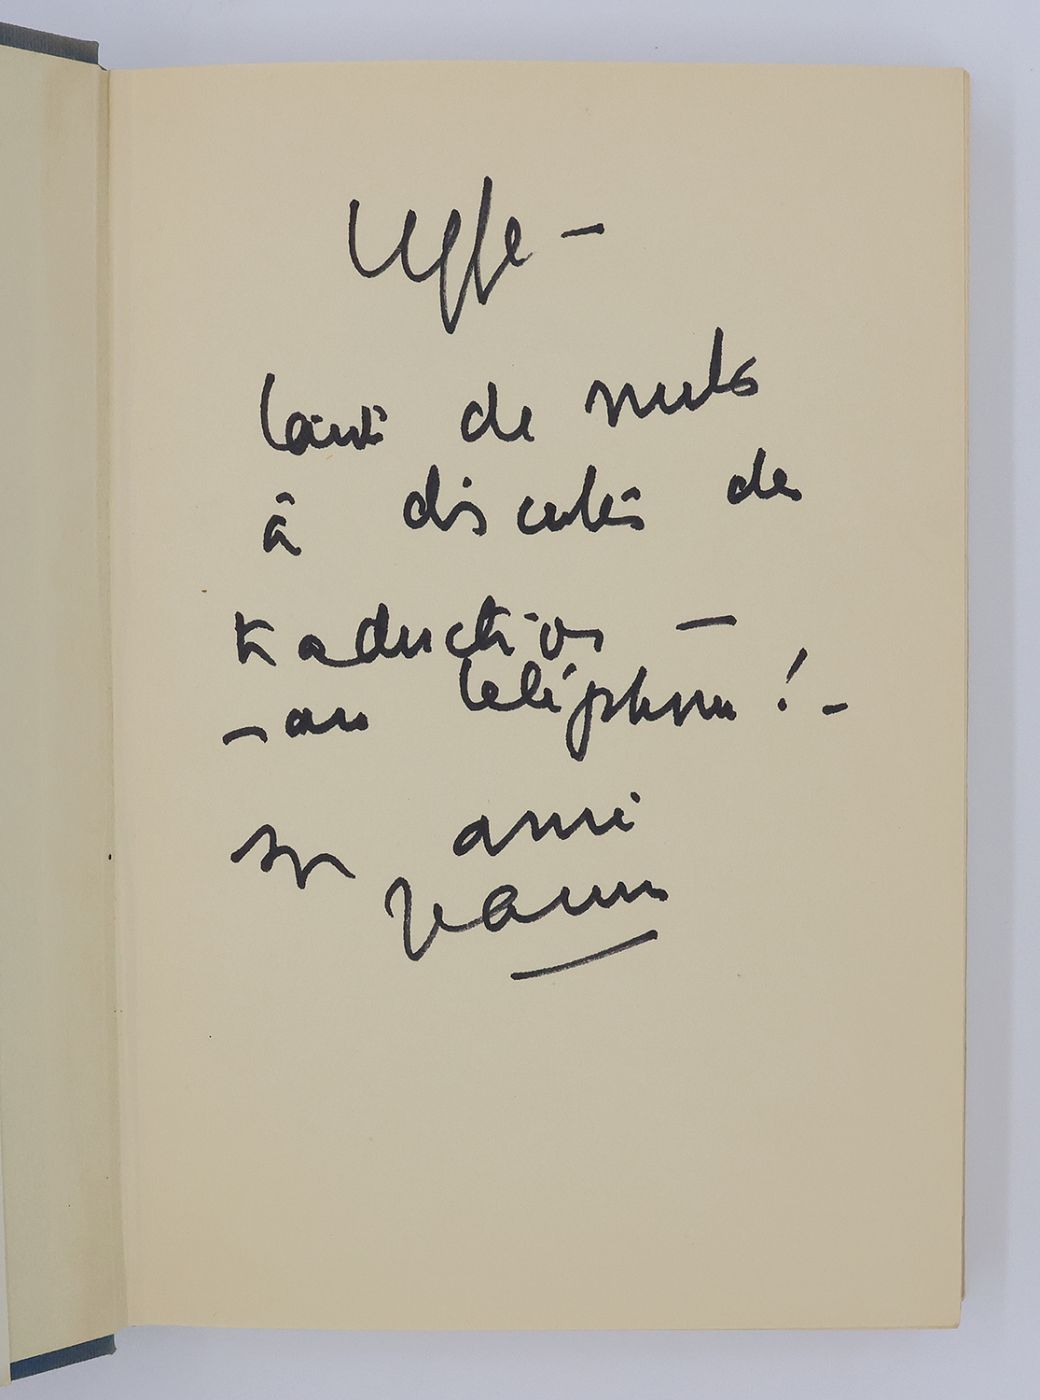 Uffe —
tant de nuits
à discuter de
traduction —
— au téléphone ! —
ami